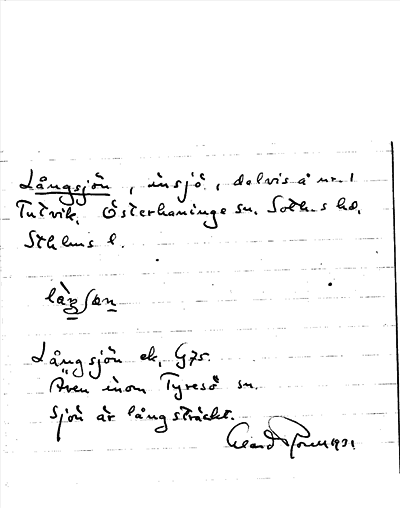 Långsjön, insjö, delvis å nr. 1
Tutvik, Österhaninge sn. Soth-s hd,
Sthlms l.
Långsjön ek. G75.
Även inom Tyresö sn.
Sjön är långsträckt.
1931